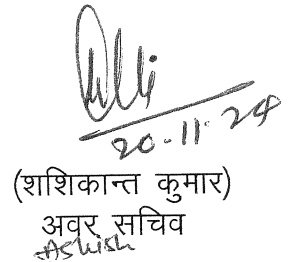 20-11-24
(शशिकान्त कुमार)
अवर सचिव
Ashish